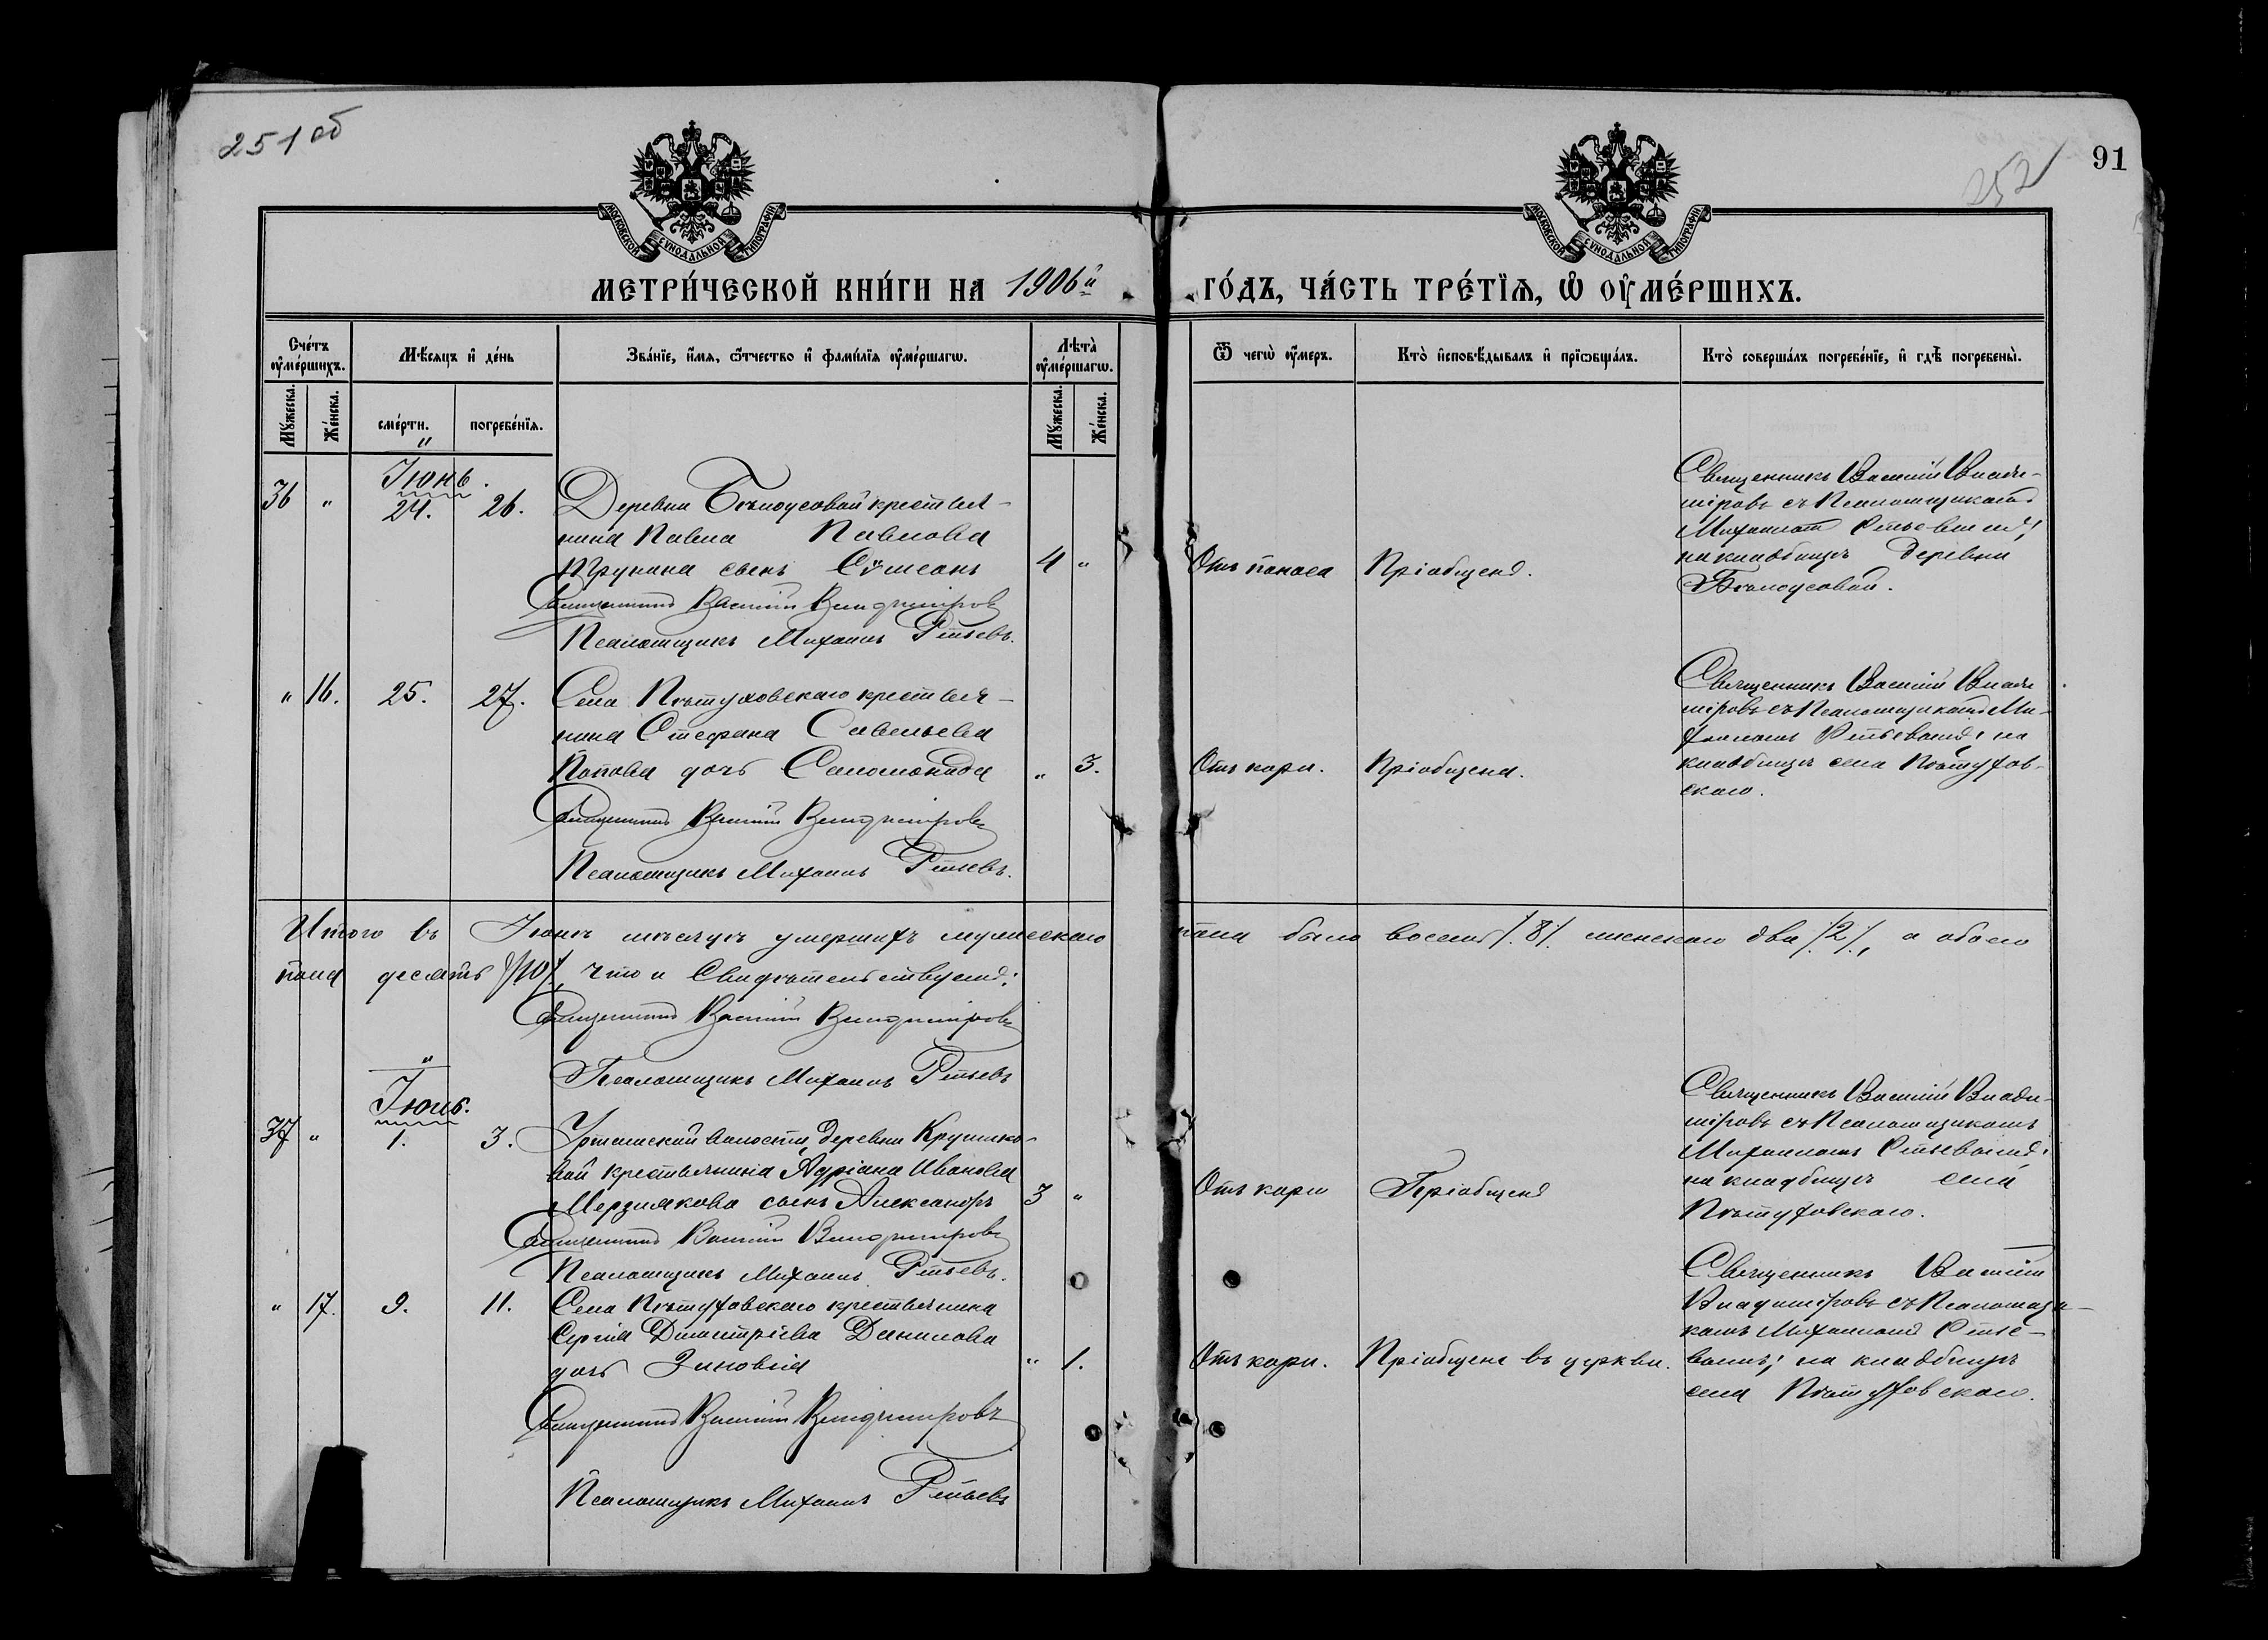 251 об
252
91
МОСКОВСКОЙ СѴНОДАЛЬНОЙ ТИПОГРАФІИ
МОСКОВСКОЙ СѴНОДАЛЬНОЙ ТИПОГРАФІИ
МЕТРИ́ЧЕСКОЙ КНИ́ГИ НА 1906й
ГО́ДЪ, ЧА́СТЬ ТРЕ́ТЇѦ, Ѡ҆ ОУ҆МЕ́РШИХЪ.
Сче́тъ оу҆ме́ршихъ.
Мѣ́сѧцъ и҆ де́нь
Зва́нїе, и҆́мѧ, ѻ҆́тчество и҆ фами́лїѧ оу҆ме́ршагѡ.
Лѣта̀ оу҆ме́ршагѡ.
Ѿ чегѡ̀ оу҆́меръ.
Кто̀ и҆сповѣ́дывалъ и҆ прїѡбща́лъ.
Кто̀ соверша́лъ погребе́нїе, и҆ гдѣ̀ погребены̀.
Мꙋ́жеска.
Же́нска.
сме́рти.
погребе́нїѧ.
Мꙋ́жеска.
Же́нска.
Іюнь.
36 " 24. 26. Деревни Бѣлоусовой крестья-
нина Павла Павлова
Трунина сынъ Сѵмеонъ 4 " Отъ поноса Пріобщенъ.
Священникъ Василій Владиміровъ
Псаломщикъ Михаилъ Рѣпьевъ.
Священникъ Василій Влади-
міровъ съ Псаломщикомъ
Михаиломъ
на кладбищѣ деревни
Бѣлоусовой.
" 16. 25. 27. Села Пѣтуховскаго крестья-
нина Стефана Савельева
Попова дочь Саломонида " 3. Отъ кори. Пріобщена.
Священникъ Василій Владиміровъ
Псаломщикъ Михаилъ
Священникъ Василій Влади
міровъ съ Псаломщикомъ Ми-
хаиломъ на
кладбищѣ села Пѣтухов-
скаго.
Итого въ Іюнѣ мѣсяцѣ умершихъ мужескаго пола было восемь /.8/. женскаго два /.2/., а обоего
пола десять /.10/., что и Свидѣтельствуемъ:
Священникъ Василій Владиміровъ
Псаломщикъ Михаилъ
Іюль.
37 " 1. 3. волости, деревни
вой крестьянина Адріана Иванова
Мерзлякова сынъ Александръ 3 " Отъ кори Пріобщенъ
Священникъ Василій Владиміровъ
Псаломщикъ Михаилъ
Священникъ Василій Влади-
міровъ съ Псаломщикомъ
Михаиломъ
на кладбищѣ села
Пѣтуховскаго.
" 17. 9. 11. Села Пѣтуховскаго крестьянина
Сергія Димитріева Данилова
дочь Зиновія " 1. Отъ кори. Пріобщена въ церкви.
Священникъ Василій Владиміровъ
Псаломщикъ Михаилъ
Священникъ Василій
Владиміровъ съ Псаломщи-
комъ Михаиломъ
на кладбищѣ
села Пѣтуховскаго.